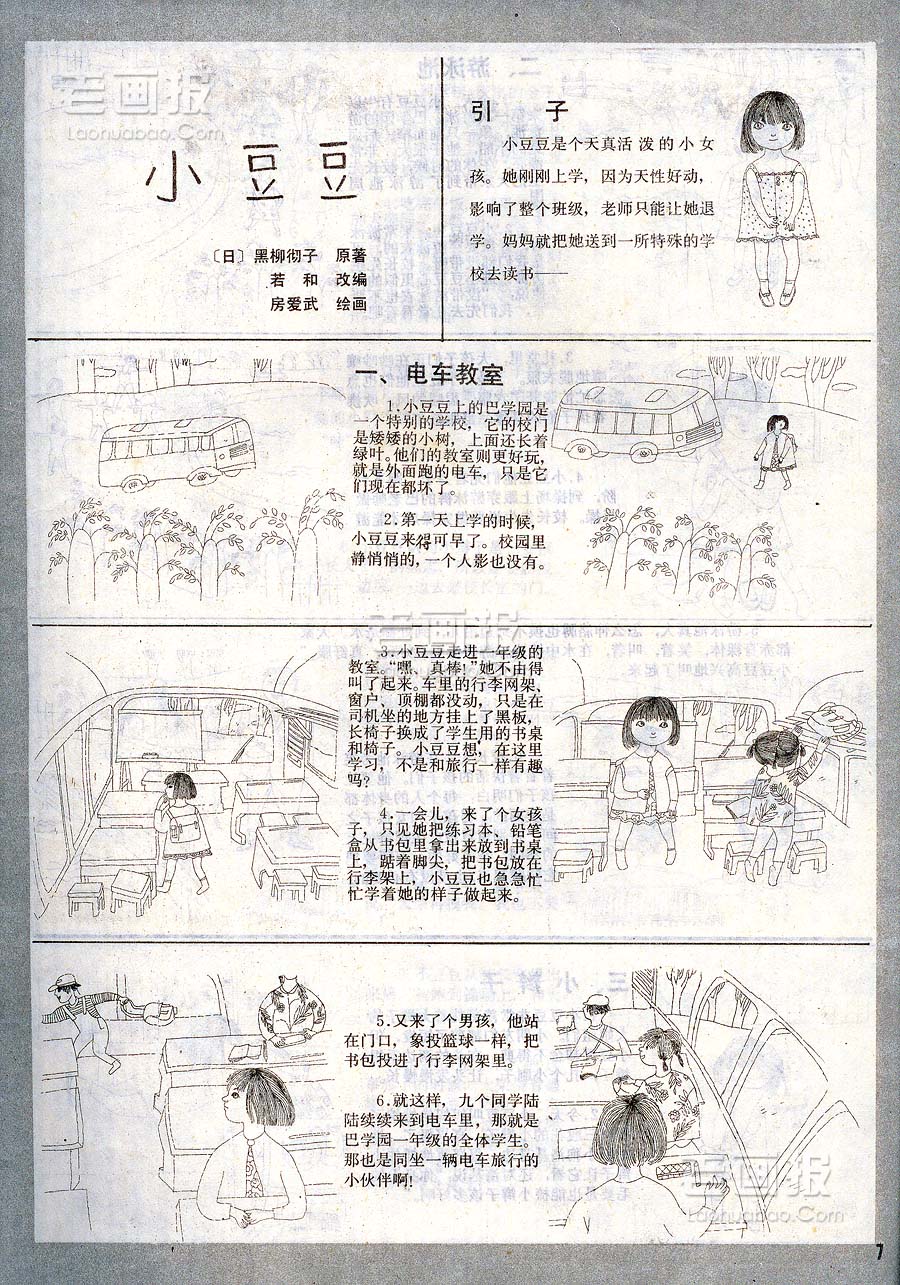 老画报
Laohuabao.Com
小豆豆
〔日〕黑柳彻子 原著
若 和 改编
房爱武 绘画
引 子
小豆豆是个天真活泼的小女
孩。她刚刚上学，因为天性好动，
影响了整个班级，老师只能让她退
学。妈妈就把她送到一所特殊的学
校去读书——
一、电车教室
1.小豆豆上的巴学园是
一个特别的学校，它的校门
是矮矮的小树，上面还长着
绿叶。他们的教室则更好玩，
就是外面跑的电车，只是它
们现在都坏了。
2.第一天上学的时候，
小豆豆来得可早了。校园里
静悄悄的，一个人影也没有。
老画报
3.小豆豆走进一年级的
教室。“嘿、真棒！”她不由得
叫了起来。车里的行李网架、
窗户、顶棚都没动，只是在
司机坐的地方挂上了黑板，
长椅子换成了学生用的书桌
和椅子。小豆豆想，在这里
学习，不是和旅行一样有趣
吗？
4.一会儿，来了个女孩
子，只见她把练习本、铅笔
盒从书包里拿出来放到书桌
上，踮着脚尖，把书包放在
行李架上，小豆豆也急急忙
忙学着她的样子做起来。
5.又来了个男孩，他站
在门口，象投篮球一样，把
书包投进了行李网架里。
6.就这样，九个同学陆
陆续续来到电车里，那就是
巴学园一年级的全体学生。
那也是同坐一辆电车旅行的
小伙伴啊！
老画报
Laohuabao.Com
7